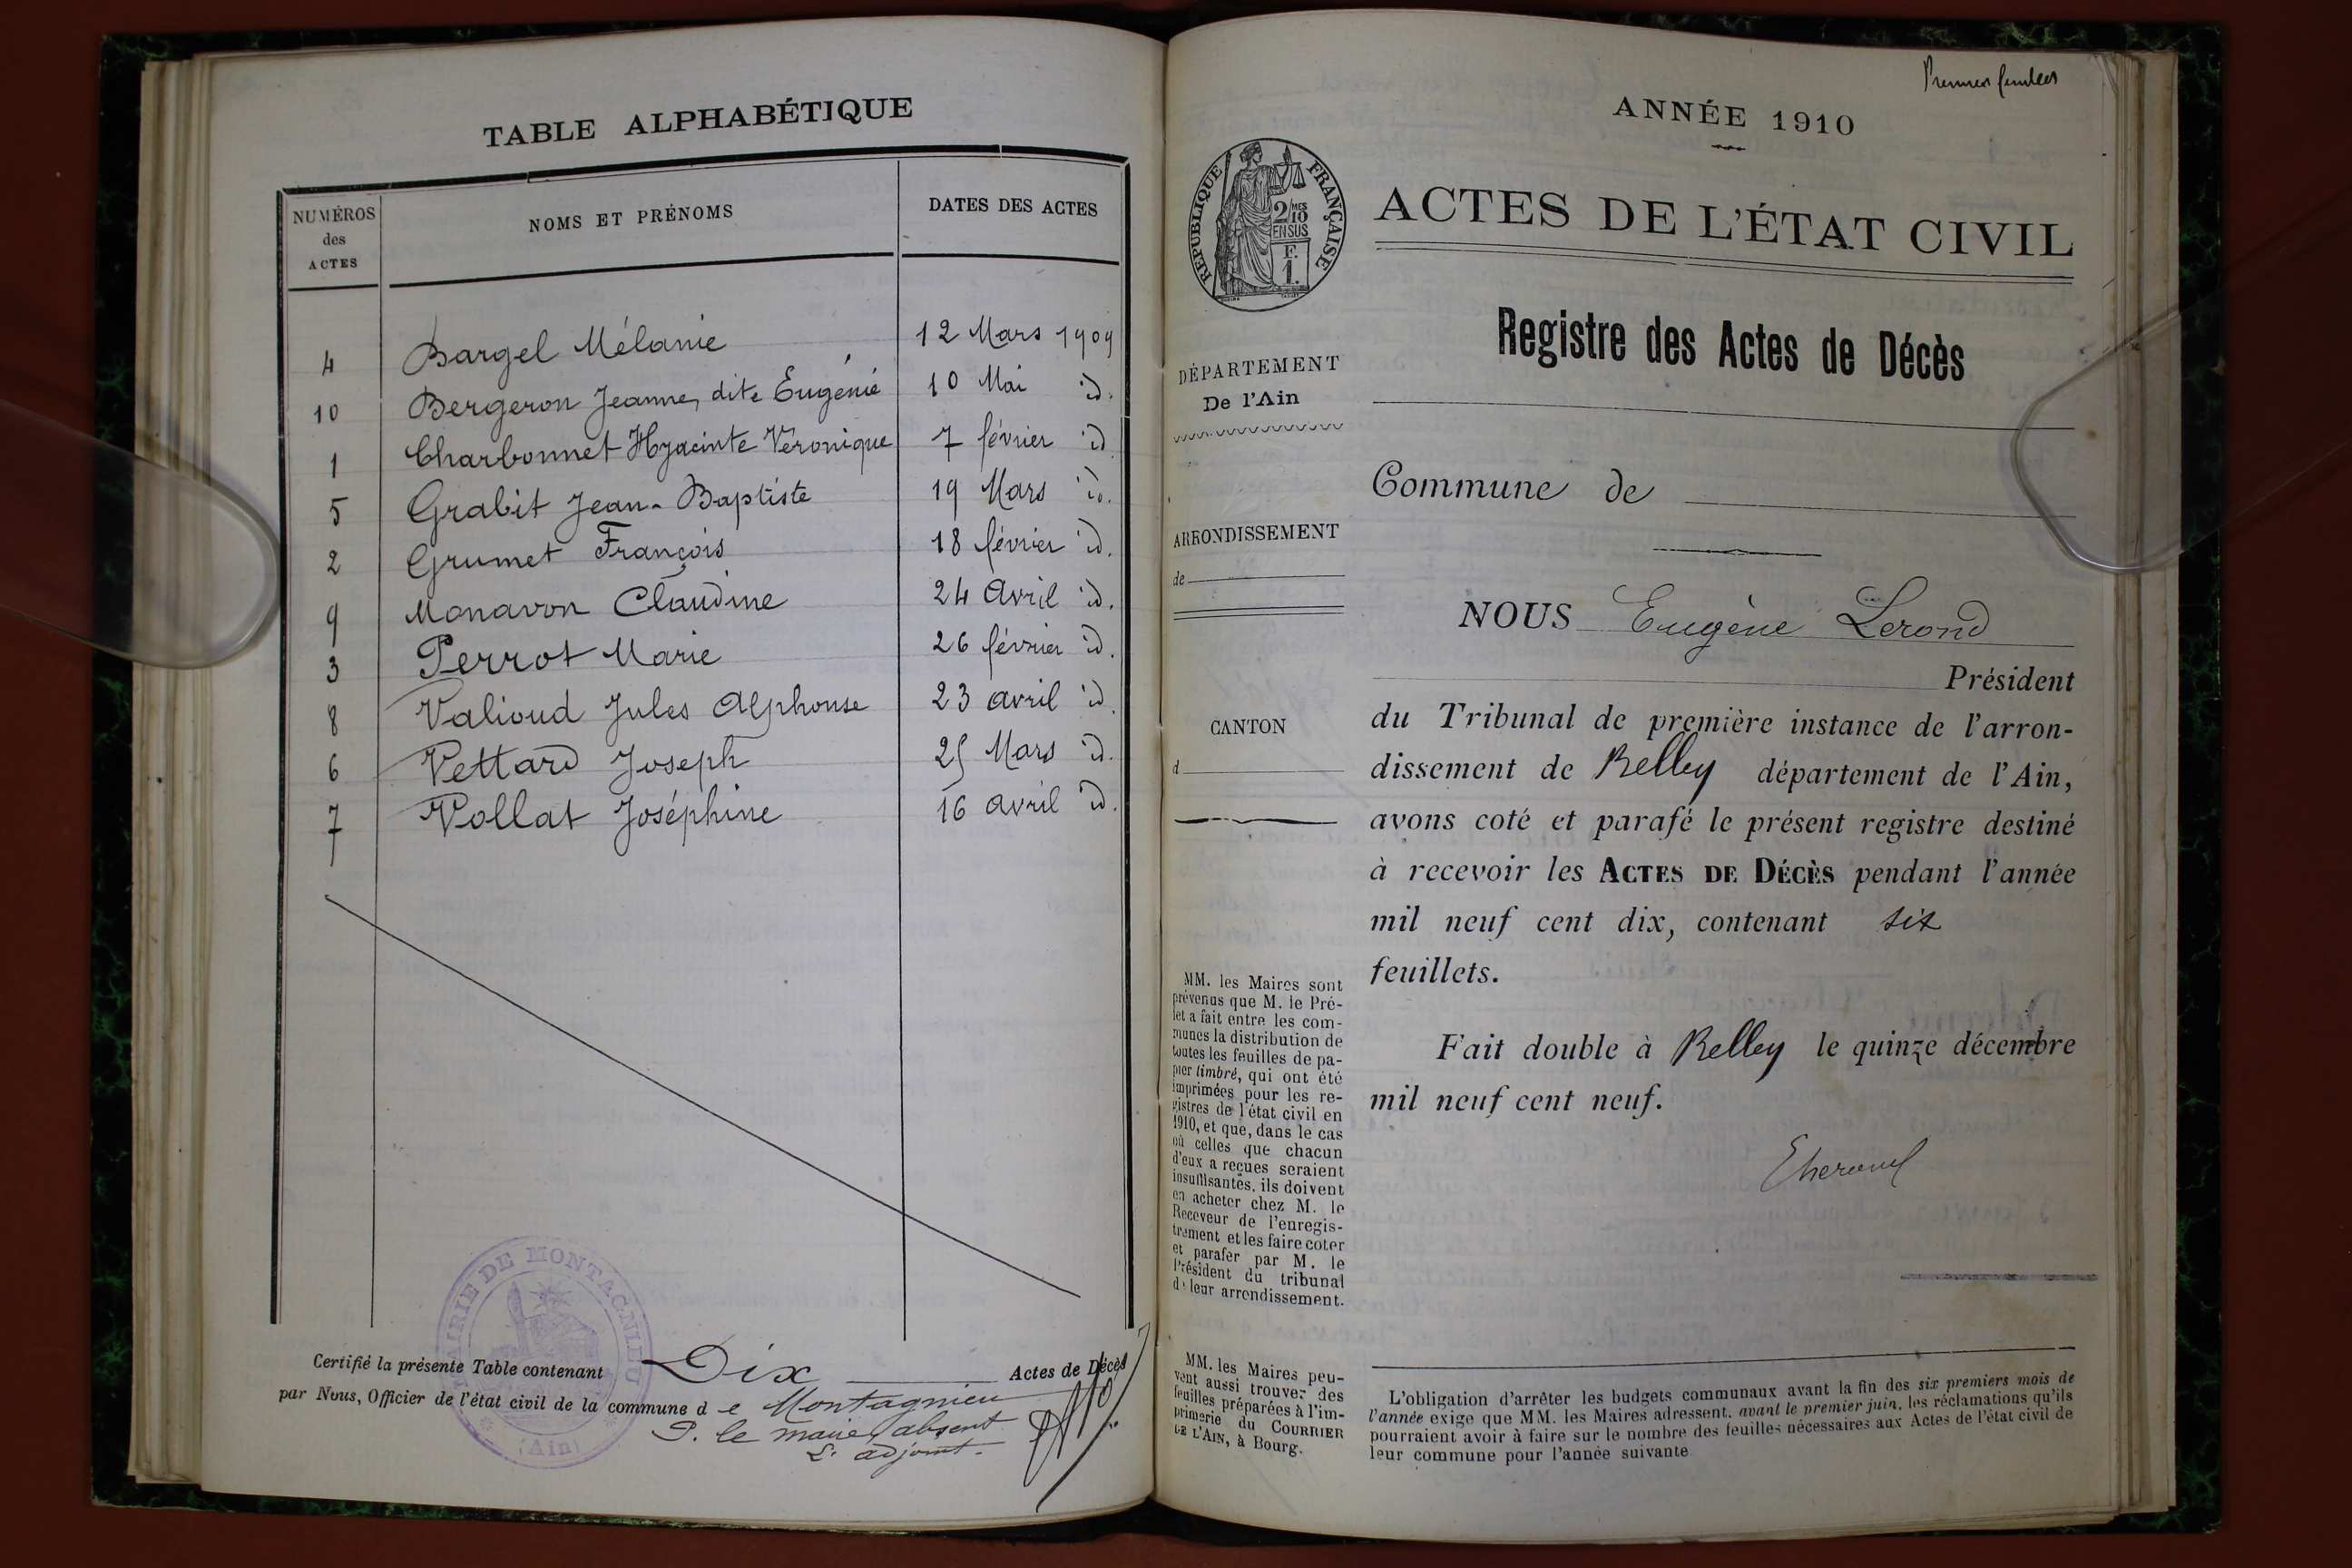 TABLE ALPHABÉTIQUE
NUMÉROS des ACTES NOMS ET PRÉNOMS DATES DES ACTES
4 Bargel Mélanie 12 Mars 1909
10 Bergeron Jeanne, dite Eugénie 10 Mai id.
1 Charbonnet Hyacinte Véronique 7 février id
5 Grabit Jean-Baptiste 19 Mars id.
2 Grumet François 18 février id.
9 Monavon Claudine 24 Avril id.
3 Perrot Marie 26 février id.
8 Valioud Jules Alphonse 23 avril id.
6 Vettard Joseph 25 Mars id.
7 Vollat Joséphine 16 avril id.
MAIRIE DE MONTAGNIEU
(Ain)
Certifié la présente Table contenant Dix Actes de Décès
par Nous, Officier de l'état civil de la commune de Montagnieu
P. le maire absent
L'adjoint.
Premier feuillet
ANNÉE 1910
RÉPUBLIQUE FRANÇAISE
2/10 MES
EN SUS
F.
1.
ACTES DE L'ÉTAT CIVIL
Registre des Actes de Décès
DÉPARTEMENT
De l'Ain
Commune de
ARRONDISSEMENT
de
CANTON
d
NOUS Eugène Lerond
Président
du Tribunal de première instance de l'arron-
dissement de Belley département de l'Ain,
avons coté et parafé le présent registre destiné
à recevoir les ACTES DE DÉCÈS pendant l'année
mil neuf cent dix, contenant six
feuillets.
Fait double à Belley le quinze décembre
mil neuf cent neuf.
MM. les Maires sont
prévenus que M. le Pré-
fet a fait entre les com-
munes la distribution de
toutes les feuilles de pa-
pier timbré, qui ont été
imprimées pour les re-
gistres de l'état civil en
1910, et que, dans le cas
où celles que chacun
d'eux a reçues seraient
insuffisantes, ils doivent
en acheter chez M. le
Receveur de l'enregis-
trement et les faire coter
et parafer par M. le
Président du tribunal
de leur arrondissement.
MM. les Maires peu-
vent aussi trouver des
feuilles préparées à l'im-
primerie du COURRIER
DE L'AIN, à Bourg.
L'obligation d'arrêter les budgets communaux avant la fin des six premiers mois de
l'année exige que MM. les Maires adressent, avant le premier juin, les réclamations qu'ils
pourraient avoir à faire sur le nombre des feuilles nécessaires aux Actes de l'état civil de
leur commune pour l'année suivante